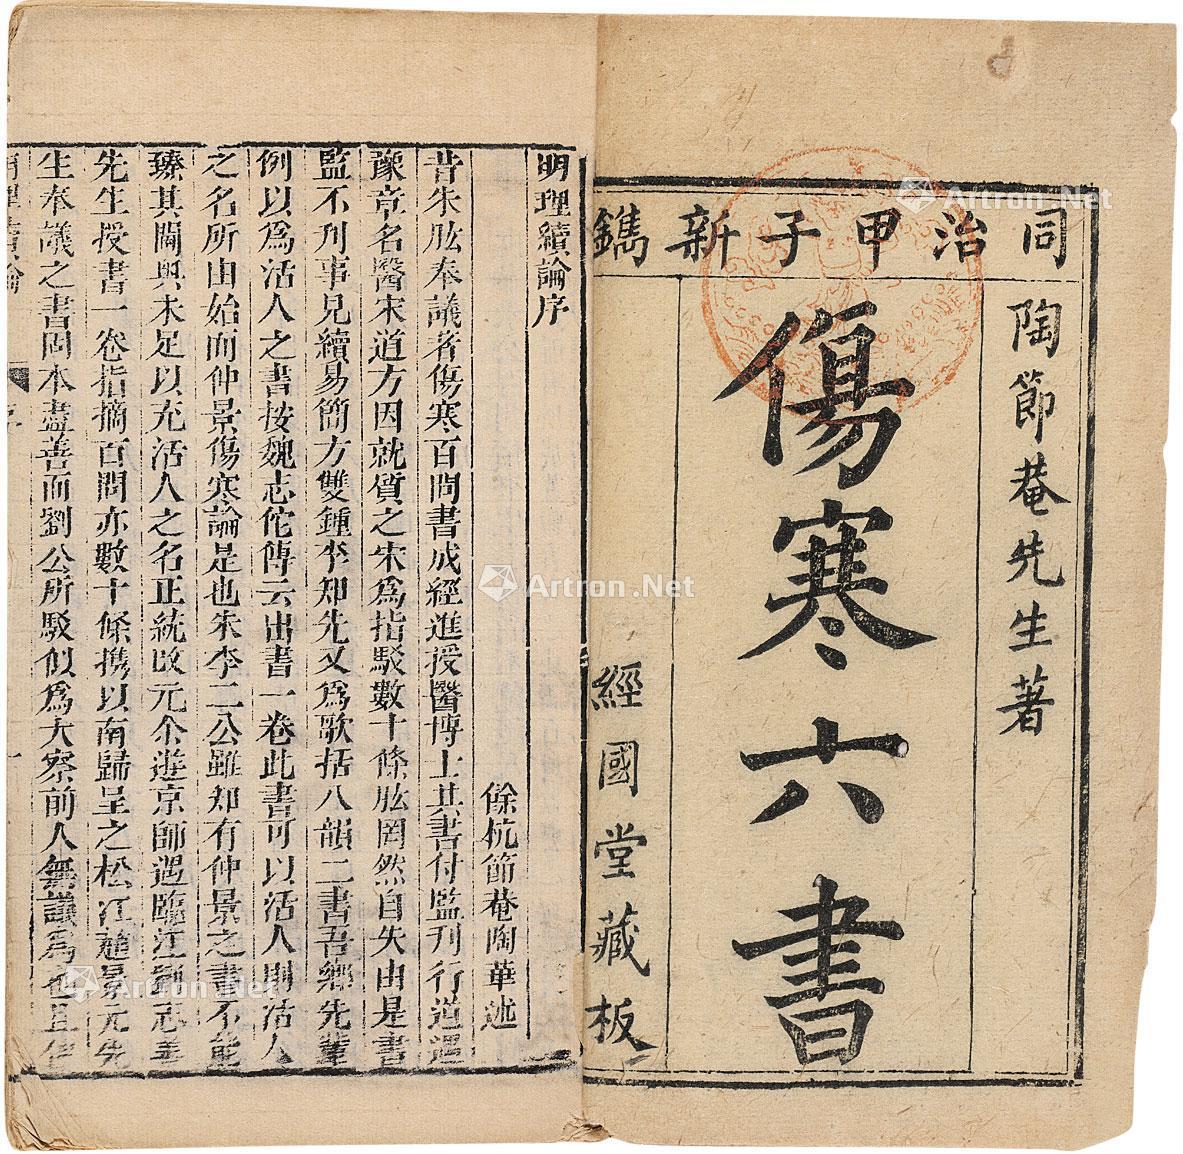 同治甲子新鐫
陶節菴先生著
傷寒六書
經國堂藏板
明理續論序
餘杭節菴陶華述
昔朱肱奉議著傷寒百問書成經進授醫博士其書付監刊行道過
豫章名醫宋道方因就質之宋為指駁數十條肱罔然自失由是書
監不刊事見續易簡方雙鍾李知先又為歌括八韻二書吾鄉先輩
例以為活人之書按魏志佗傳云出書一卷此書可以活人則活人
之名所由始而仲景傷寒論是也朱李二公雖却有仲景之書不能
臻其閫奥未足以充活人之名正統改元余遊京師遇臨江劉志善
先生授書一卷指摘百問亦數十條携以南歸呈之松江趙景元先
生奉議之書固本盡善而劉公所駁似為大察前人無議為也且
Artron.Net
Artron.Net
Artron.Net